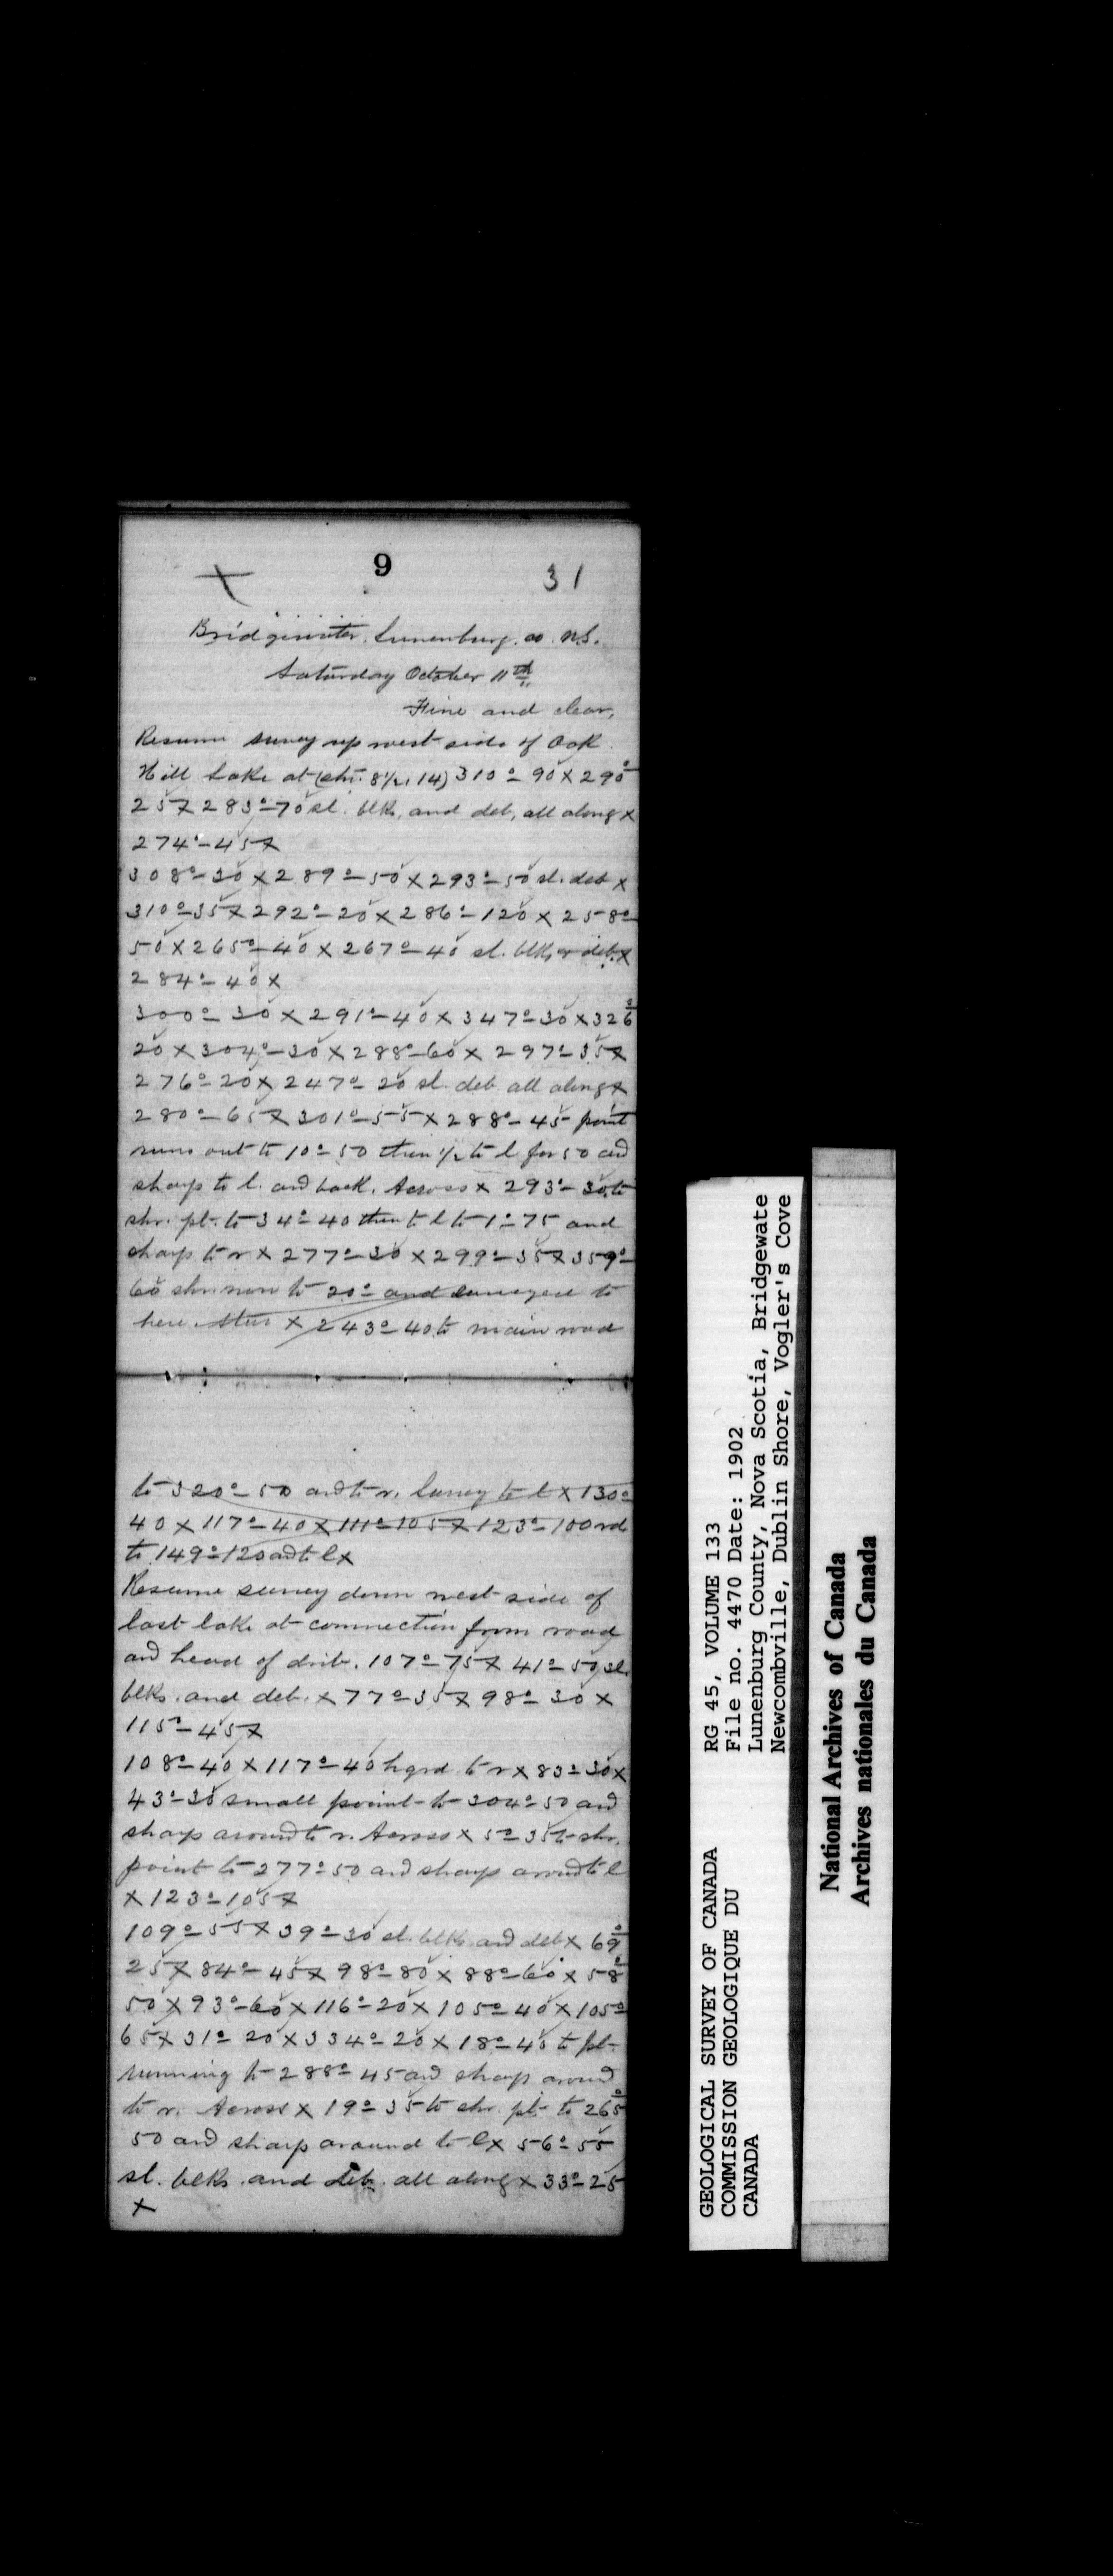 9
31
Bridgewater. Lunenburg. co. N.S.
Saturday October 11th
Fine and clear.
Resume survey up west side of Oak
Hill Lake at (shr. 8½, 14) 310°-90 X 290°
25 X 283°-70 sl. blks, and deb, all along X
274°-45 X
308°-30 X 289°-50 X 293°-50 sl. deb X
310°-35 X 292°-20 X 286°-120 X 258°-
50 X 265°-40 X 267°-40 sl. blks & deb. X
284°-40 X
300°-30 X 291°-40 X 347°-30 X 326°
20 X 304°-30 X 288°-60 X 297°-35 X
276°-20 X 247°-20 sl. deb all along X
280°-65 X 301°-55 X 288°-45 point
runs out to 10°-50 then ½ to l for 50 and
sharp to l. and back. Across X 293°-30 to
shr. pt. to 34°-40 then to l to 1°-75 and
sharp to r X 277°-30 X 299°-35 X 359°-
60 shr now to 20° and surveyed to
here. X 243°-40 to main road
to 320°-50 and to r. Survey to l X 130°-
40 X 117°-40 X 111°-105 X 123°-100 rd
to 149°-120 and to l X
Resume survey down west side of
last lake at connection from road
and head of drib. 107°-75 X 41°-50 sl.
blks. and deb. X 77°-35 X 98°-30 X
115°-45 X
108°-40 X 117°-40 hgrd to r X 83°-30 X
43°-30 small point to 304°-50 and
sharp around to r. Across X 5°-35 to shr.
point to 277°-50 and sharp around to l
X 123°-105 X
109°-55 X 39°-30 sl. blks and deb X 69°
25 X 84°-45 X 98°-80 X 88°-60 X 58°
50 X 93°-60 X 116°-20 X 105°-40 X 105°-
65 X 31°-20 X 334°-20 X 18°-40 to pt-
running to 288°-45 and sharp around
to r. Across X 19°-35 to shr. pt- to 265°
50 and sharp around to l X 56°-55
sl. blks. and deb. all along X 33°-25
X
GEOLOGICAL SURVEY OF CANADA
COMMISSION GEOLOGIQUE DU
CANADA
RG 45, VOLUME 133
File no. 4470 Date: 1902
Lunenburg County, Nova Scotia, Bridgewate
Newcombville, Dublin Shore, Vogler's Cove
National Archives of Canada
Archives nationales du Canada